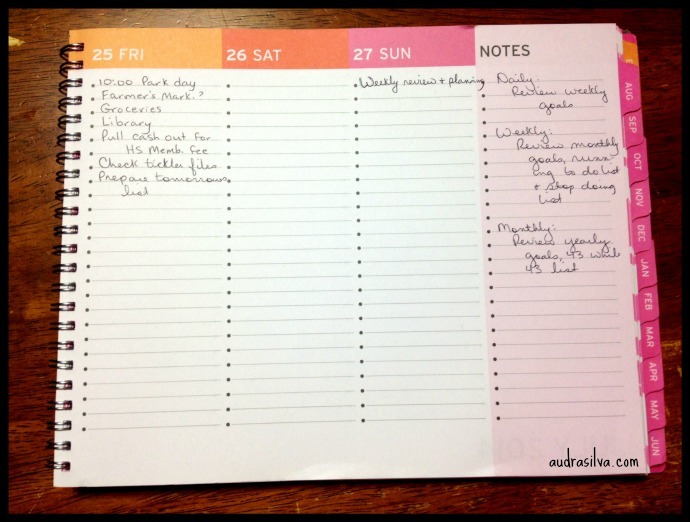 25 FRI
10:00 Park day
Farmer's Mark.?
Groceries
Library
Pull cash out for
HS Memb. fee
Check tickler files
Prepare tomorrows
list
26 SAT
27 SUN
Weekly review + planning
NOTES
Daily:
Review weekly
goals
Weekly:
Review monthly
goals, runn
ing to do list
+ stop doing
list
Monthly:
Review yearly
goals, 43 while
43 list
AUG
SEP
OCT
NOV
DEC
JAN
FEB
MAR
APR
MAY
JUN
audrasilva.com